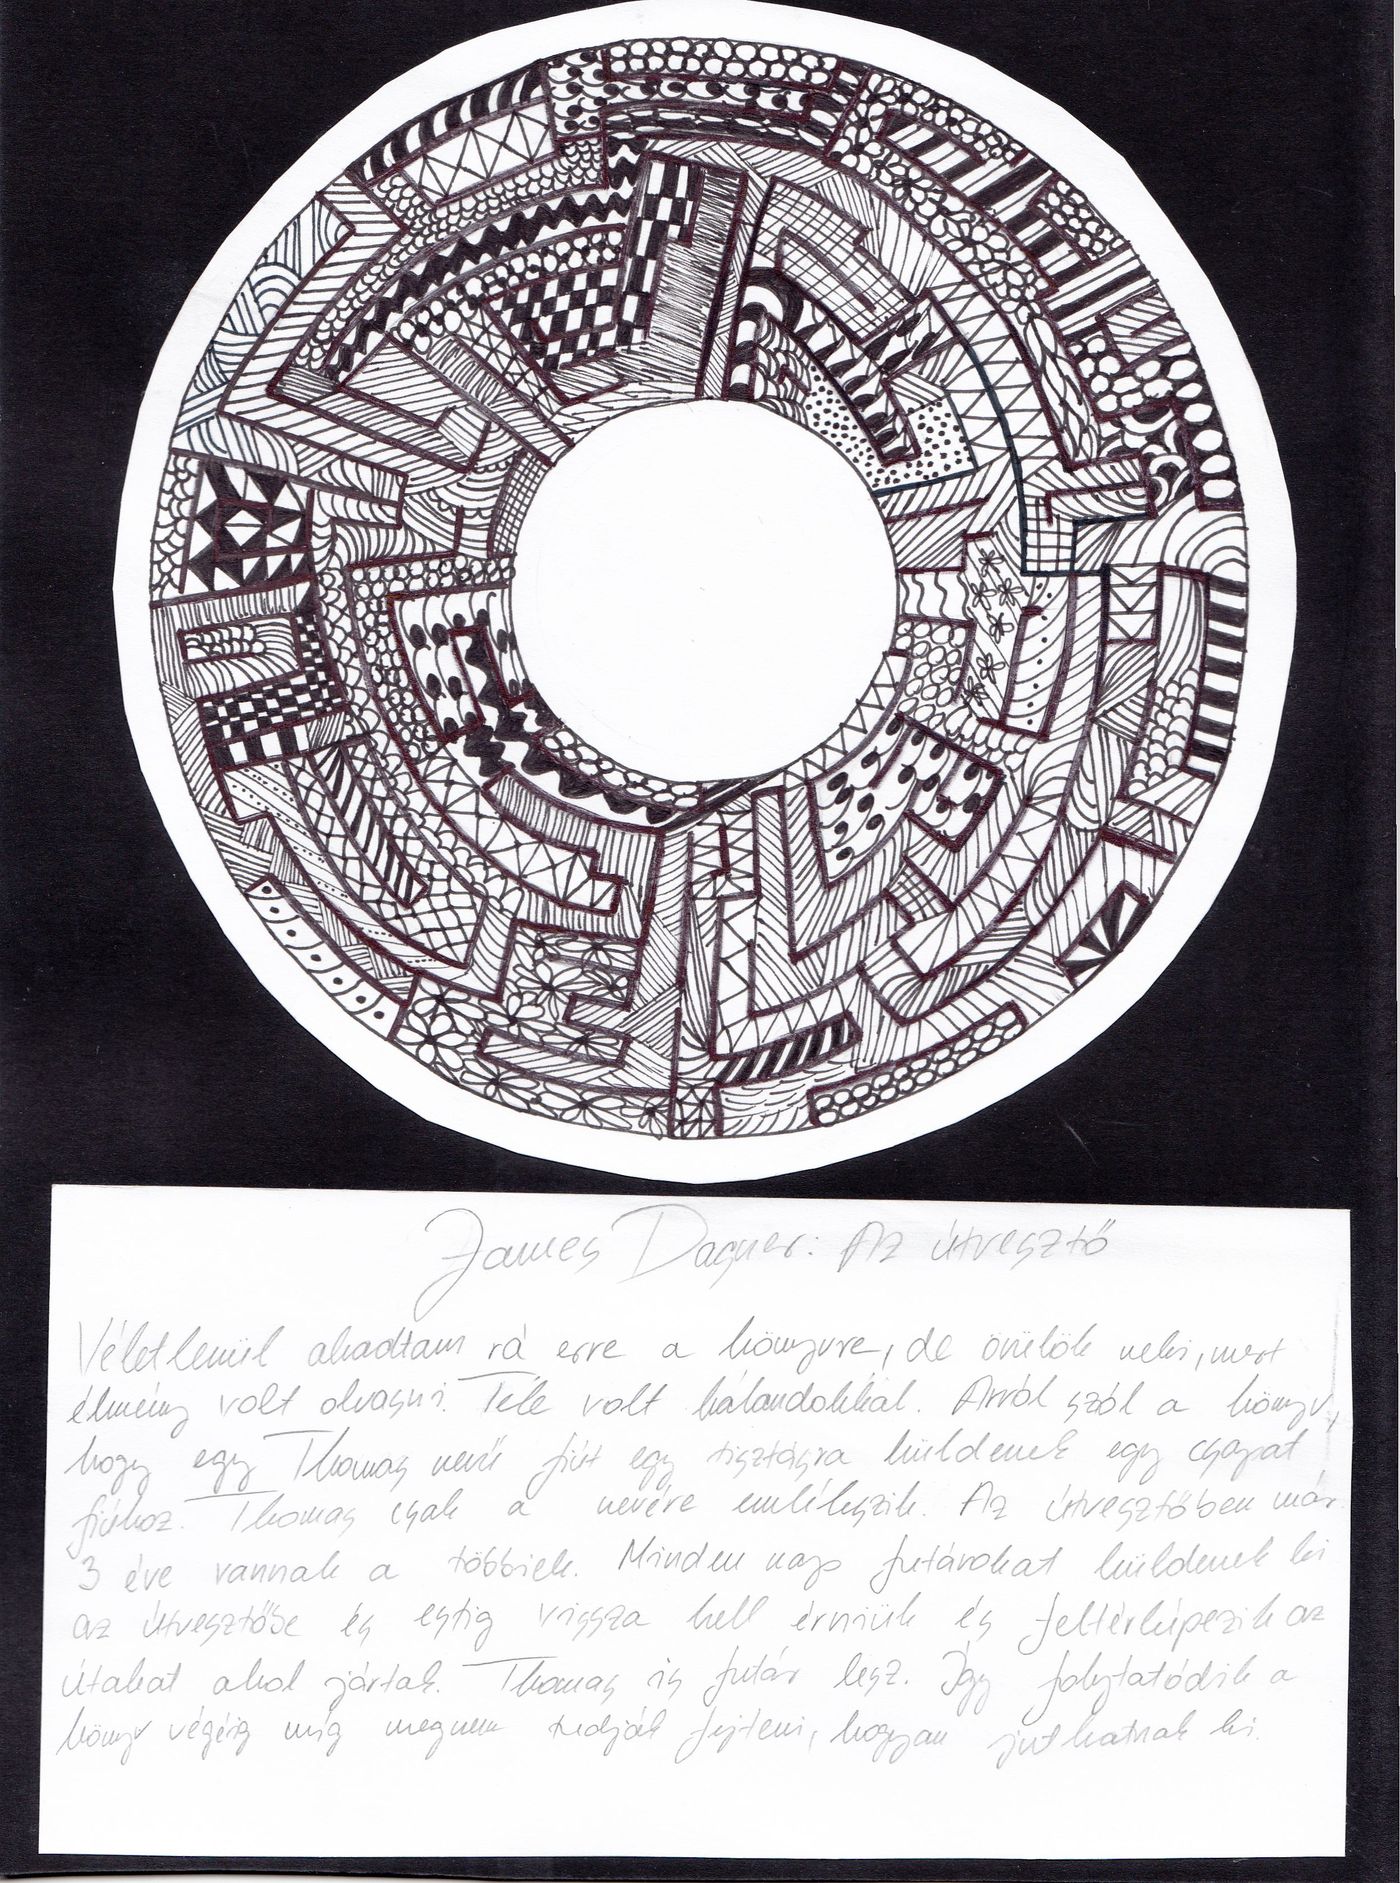 James Dasner: Az útvesztő
Véletlenül akadtam rá erre a könyvre, de örülök neki, mert
élmény volt olvasni. Tele volt kalandokkal. Arról szól a könyv,
hogy egy Thomas nevű fiút egy tisztásra küldenek egy csapat
fiúhoz. Thomas csak a nevére emlékszik. Az útvesztőben már
3 éve vannak a többiek. Minden nap futárokat küldenek ki
az útvesztőbe és estig vissza kell érniük és feltérképezik az
útakat ahol jártak. Thomas is futár lesz. Így folytatódik a
könyv végéig míg megnem tudják fejteni, hogyan juthatnak ki.